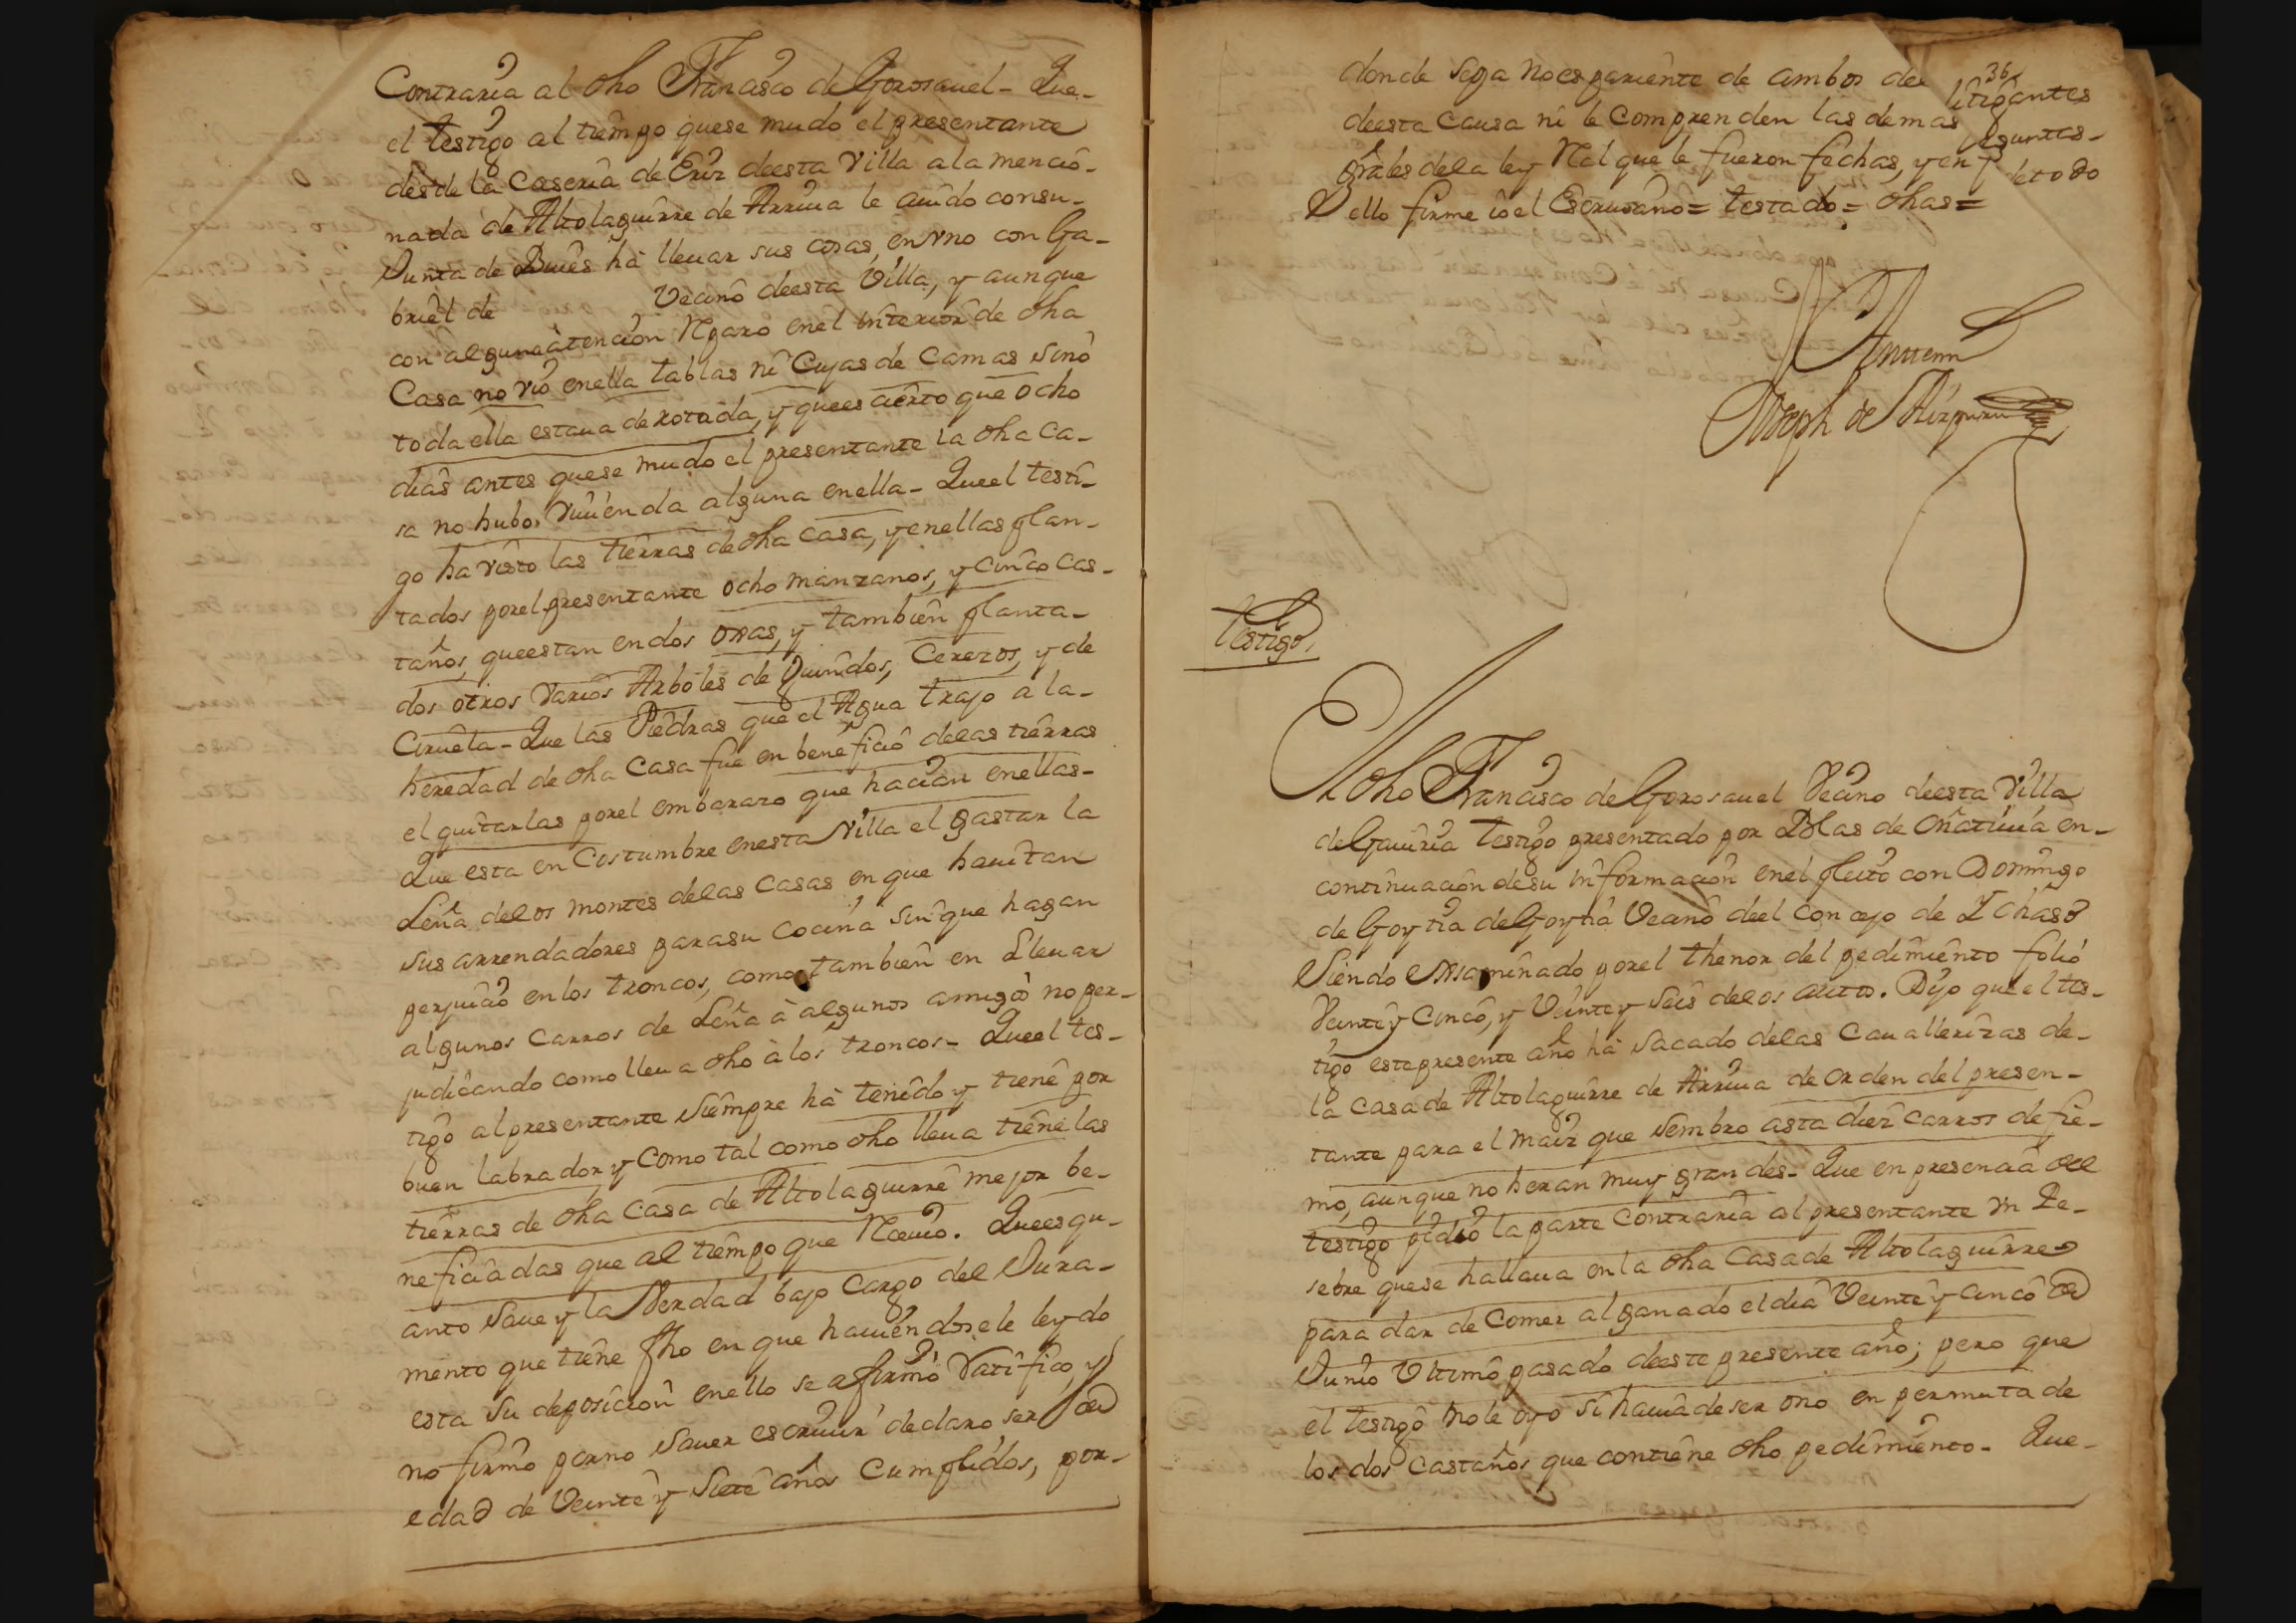 Contraria al dho Francisco de Gorosauel - Que-
el testigo al tiempo quese mudo el presentante
desde la Caseria de Eriz deesta Villa ala mencio-
nada de Altolaguirre de Arriua le aiudo consu-
Junta de Bueis hà lleuar sus cosas, en vno con Ga-
briel de Vecino deesta Villa, y aunque
con alguna atencion Rparo enel interior de dha
Casa no vio enella tablas ni Cujas de Camas sino
toda ella estaua derotada, y quees cierto que ocho
dias antes quese mudo el presentante la dha ca-
sa no hubo viuienda alguna enella - Queel testi-
go ha visto las tierras de dha casa, y enellas plan-
tados porel presentante ocho manzanos, y cinco cas-
taños, queestan endos orras, y tambien planta-
dos otros varios Arboles de Guindos, Cerezos, y de
Ciruela - Que las Piedras que el Agua trajo à la-
heredad de dha Casa fue en beneficio delas tierras
el quitarlas porel embarazo que hacian enellas-
Que esta en Costumbre enesta Villa el gastar la
Leña delos montes delas Casas en que hauitan
sus arrendadores parasu cocina sin que hagan
perjuicio enlos troncos, como tambien en Lleuar
algunos Carros de Leña à algunos amigos no per-
judicando como lleua dho à los troncos - Queel tes-
tigo alpresentante siempre hà tenido y tiene por
buen labrador, y Como tal como dho lleua tiene las
tierras de dha Casa de Altolaguirre mejor be-
neficiadas que al tiempo que Rciuio. Quees qu-
anto saue y la Verdad bajo Cargo del Jura-
mento que tiene fho en que hauiendosele leydo
esta su deposicion enello se afirmò ratifico, y
no firmò porno sauer escriuir declaro ser de
edad de Veinte y Siete años Cumplidos, por-
36
donde sepa noes pariente de ambos de litigantes
deesta Causa ni le Comprenden las demas preguntas-
grales dela ley Rl que le fueron fechas, y en fe detodo
Dello firme io el Escriuano = testado = dhas =
Antemi
Joseph de Aizpuru
Testigo,
El dho Francisco de Gorosauel Vecino deesta Villa
de Gauiria testigo presentado por Blas de Oñatiuia en-
continuacion desu informacion enel pleito con Domingo
de Goytia de Goytia Vecino deel Concejo de Ichaso
Siendo Exsaminado porel thenor del pedimiento folio
Veinte y Cinco, y Veinte y Seis delos autos. Dijo que el tes-
tigo estepresente año hà sacado delas Cauallerizas de-
la casa de Altolaguirre de Arriua de orden del presen-
tante para el maiz que sembro asta diez carros de fie-
mo, aunque no heran muy grandes - Que en presencia del
testigo pidiò la parte Contraria al presentante vn Pe-
sebre quese hallaua en la dha Casa de Altolaguirre
para dar de Comer alganado el dia Veinte y cinco de
Junio Vltimo pasado deeste presente año; pero que
el testigo no le oyo si hauia de ser ono en permuta de
los dos Castaños que contiene dho pedimiento - Que-